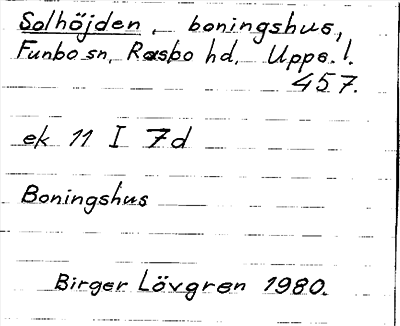 Solhöjden, boningshus,
Funbo sn, Rasbo hd, Upps. l.
457.
ek 11 I 7d
Boningshus
Birger Lövgren 1980.